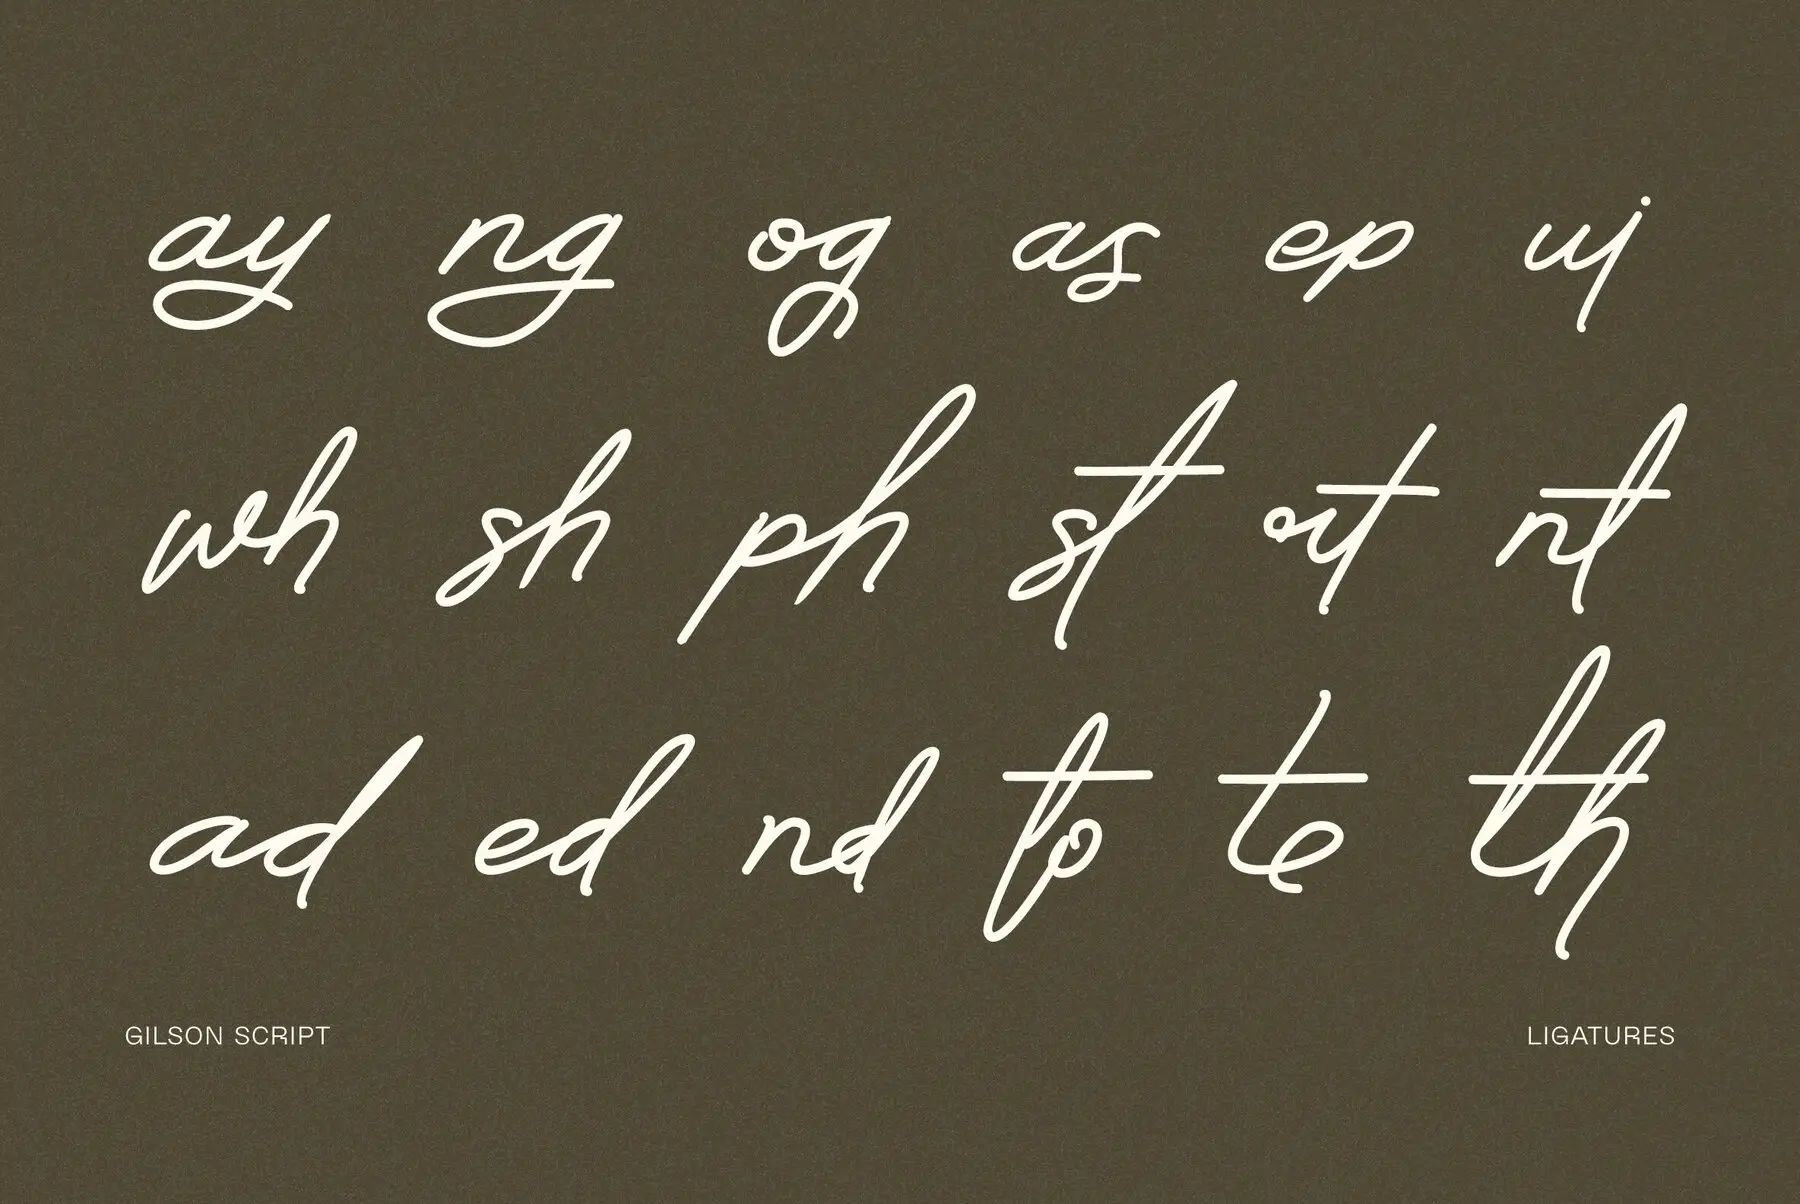 ay ng og as ep uj
wh sh ph st ort nt
ad ed nd to te th
GILSON SCRIPT
LIGATURES